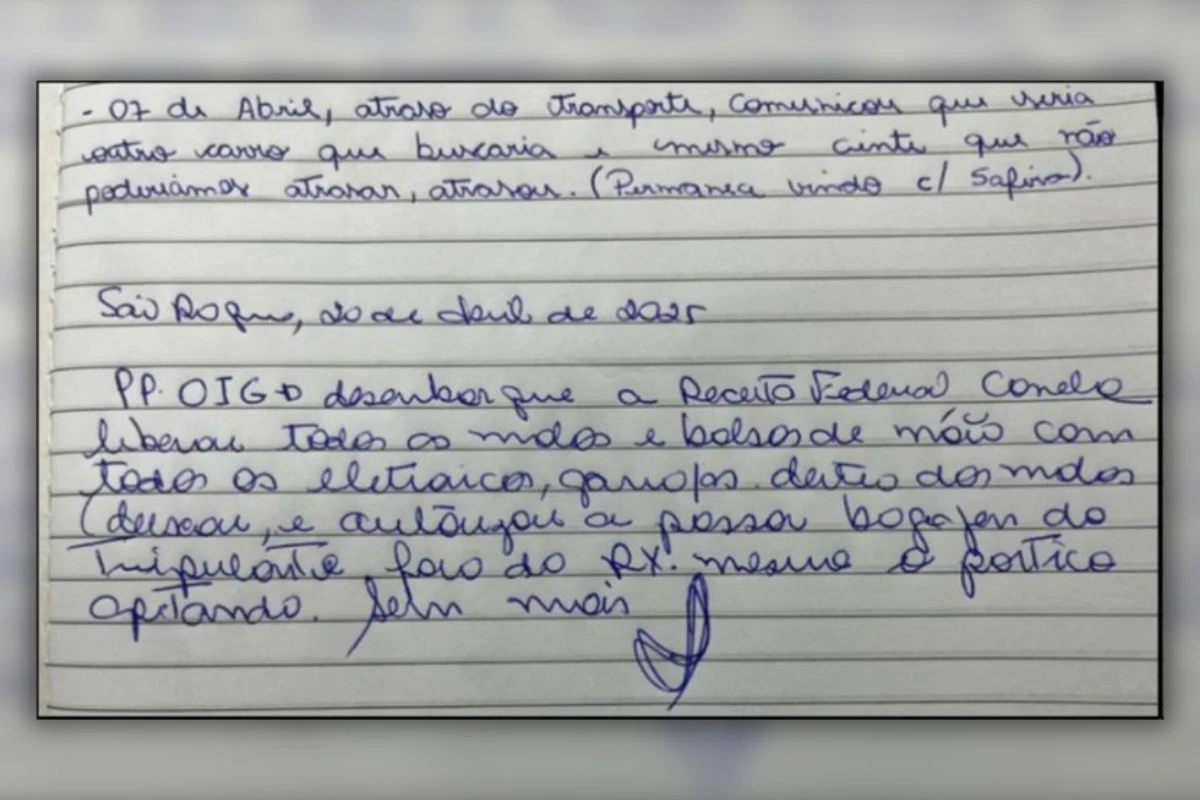 - 07 de Abril, atraso do transporte, comunicou que seria
outro carro que buscaria e mesmo ciente que não
poderiamos atrasar, atrasou. (Permanea vindo c/ Safira).
São Roque, 20 de abril de 2025
PP. OIG desembarque a Receita Federal
liberou todos os e bolsos de mão com
todos os eletraicos, dentro dos
(deixou, e autorizou a passar bogajem do
tripulante, fora do RX. mesmo o portico
apitando. Sem mais